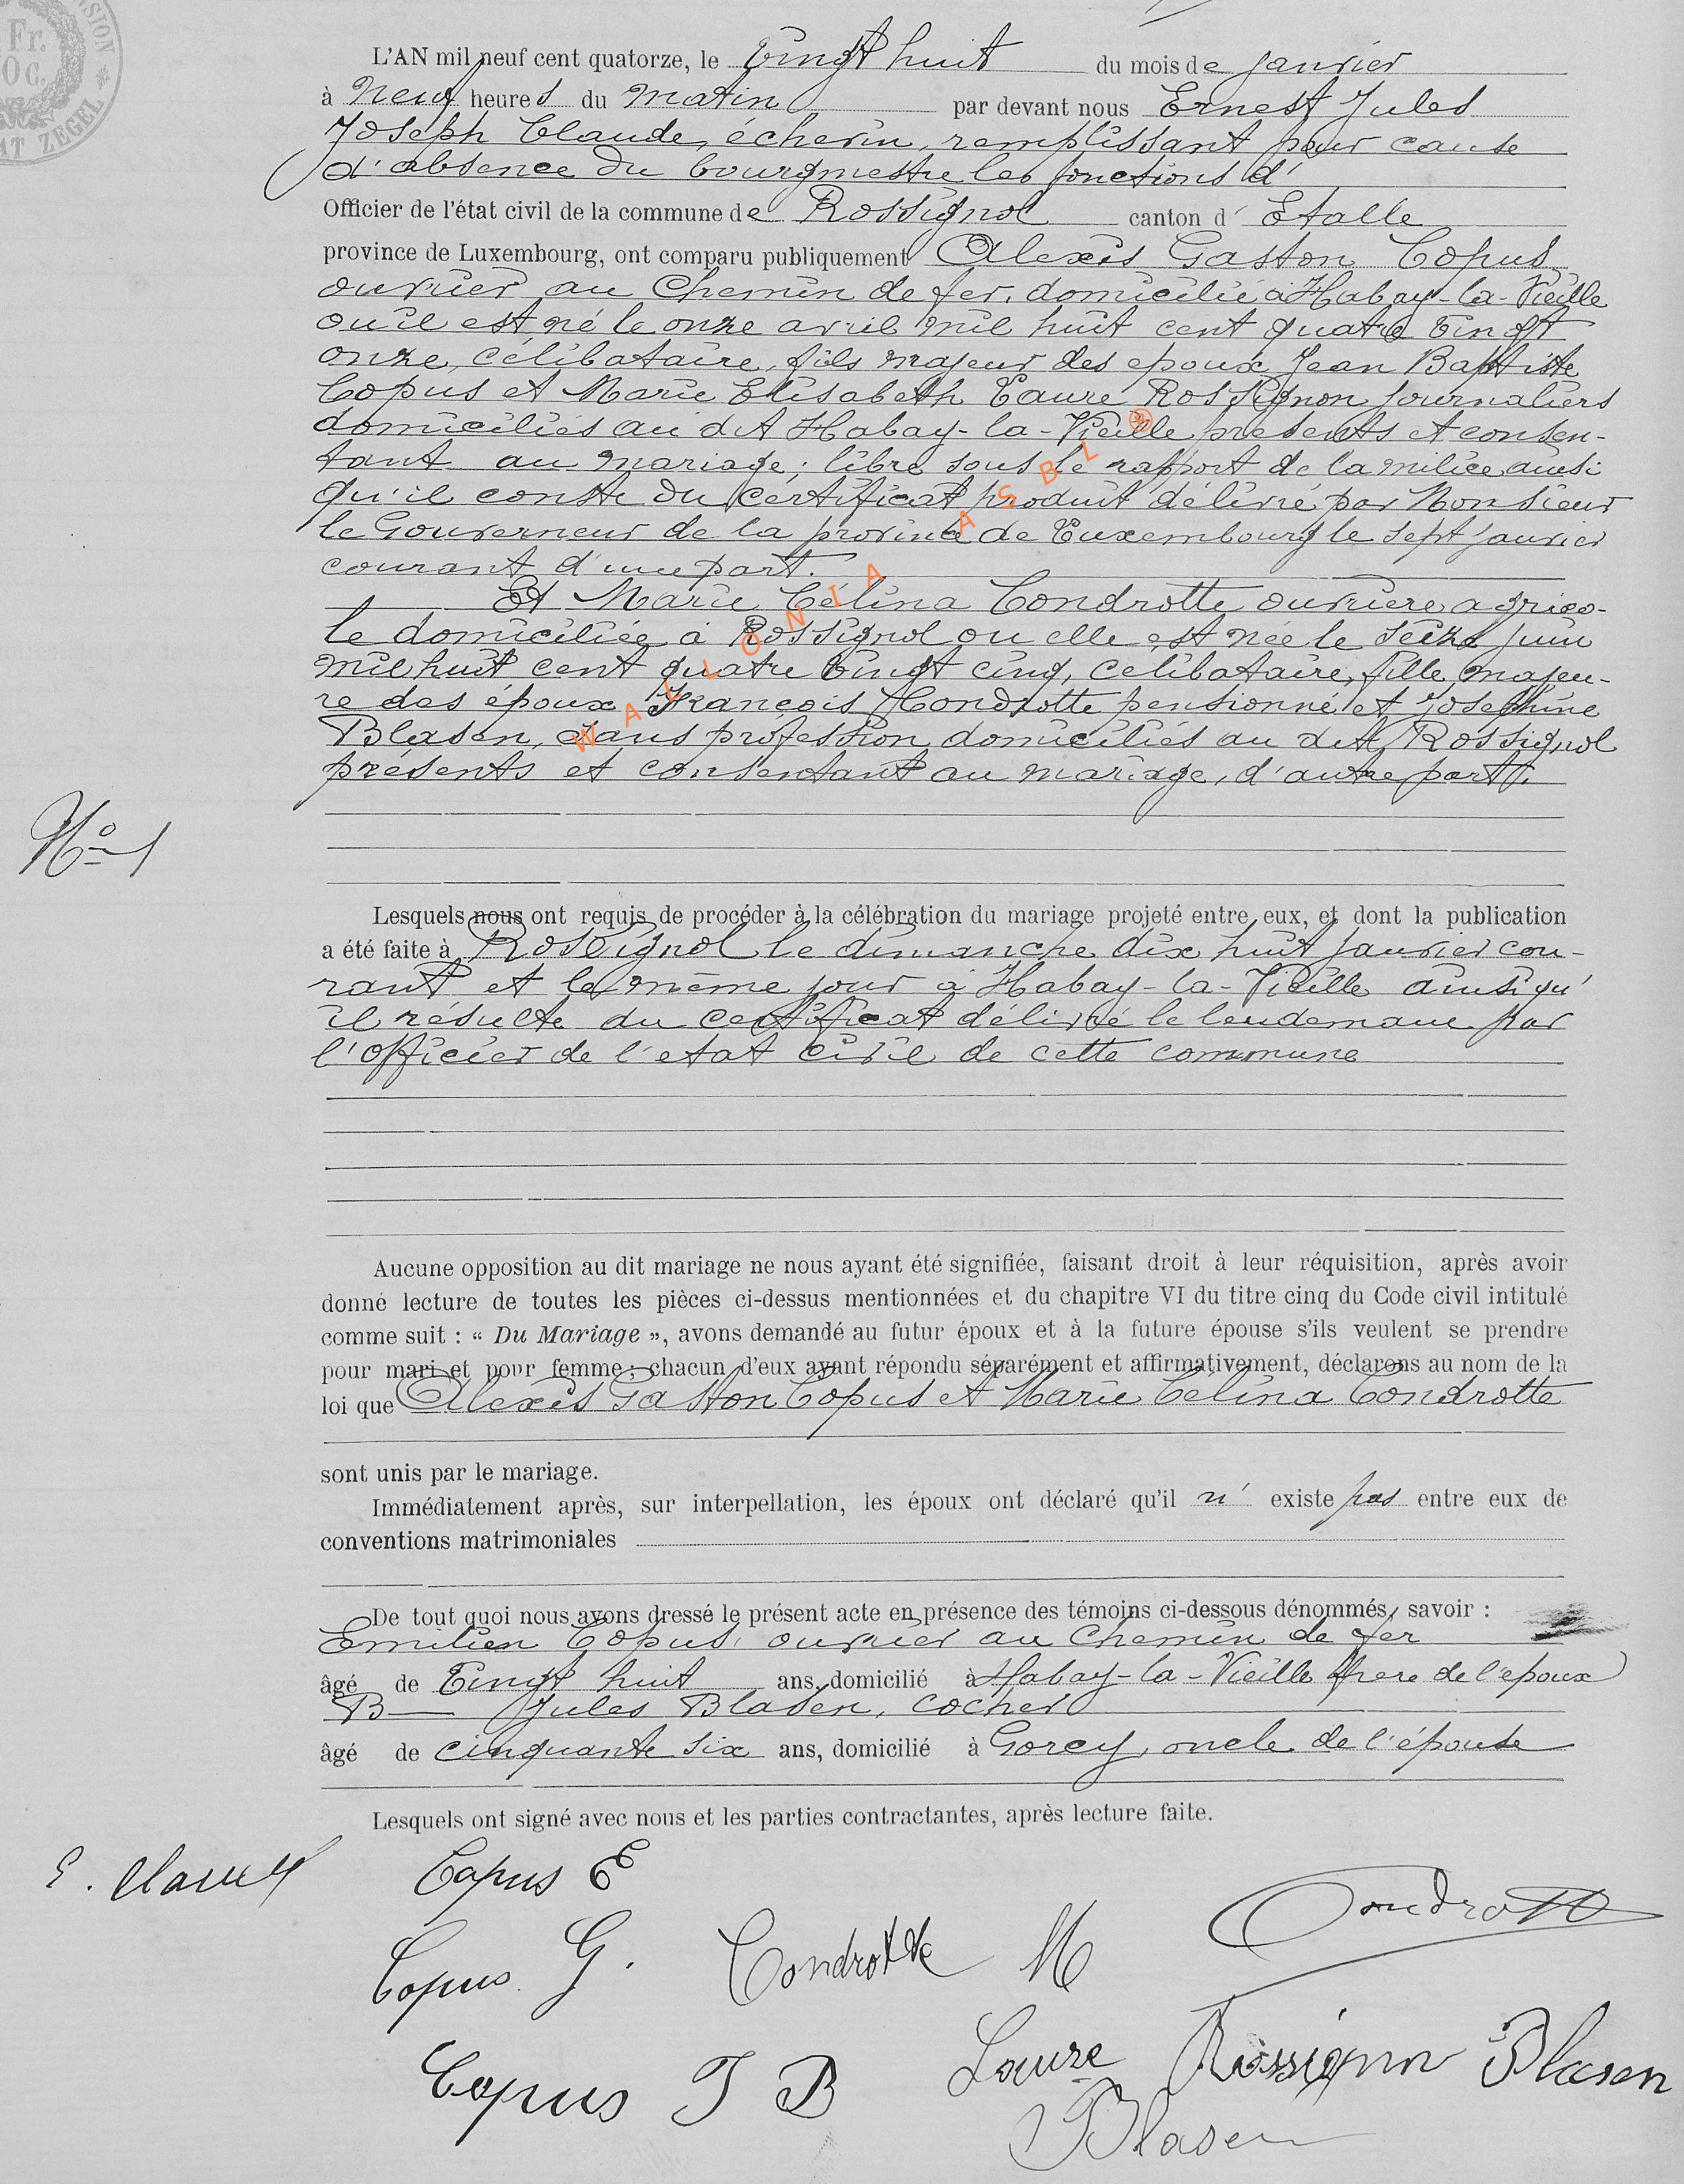 Fr.
OC.
SION
AT ZEGEL
L'AN mil neuf cent quatorze, le Vingt huit du mois de janvier
à Neuf heures du Matin par devant nous Ernest Jules
Joseph Claude, échevin, remplissant pour cause
d'absence du bourgmestre les fonctions d'
Officier de l'état civil de la commune de Rossignol canton d' Etalle
province de Luxembourg, ont comparu publiquement Alexis Gaston Copus
ouvrier au Chemin de fer, domicilié à Habay-la-Vieille
où il est né le onze avril mil huit cent quatre vingt
onze, célibataire, fils majeur des epoux Jean Baptiste
Copus et Marie Elisabeth Laure Rossignon journaliers
domiciliés au dit Habay-la-Vieille présents et consen-
tant au mariage; libre sous le rapport de la milice ainsi
qu'il conste du certificat produit délivré par Monsieur
le Gouverneur de la province de Luxembourg le sept janvier
courant d'une part.
Et Marie Célina Condrotte ouvrière agrico-
le domiciliée à Rossignol ou elle est née le seize juin
mil huit cent quatre vingt cinq, celibataire, fille majeu-
re des époux François Condrotte pensionné et Joséphine
Blasen, sans profession domiciliés au dit Rossignol
présents et consentant au mariage, d'autre part.
WALLONIA ASBL ®
No 1
Lesquels nous ont requis de procéder à la célébration du mariage projeté entre eux, et dont la publication
a été faite à Rossignol le dimanche dix huit janvier cou-
rant et le même jour à Habay-la-Vieille ainsi qu'
il résulte du certificat délivré le lendemain par
l'officier de l'etat civil de cette commune
Aucune opposition au dit mariage ne nous ayant été signifiée, faisant droit à leur réquisition, après avoir
donné lecture de toutes les pièces ci-dessus mentionnées et du chapitre VI du titre cinq du Code civil intitulé
comme suit : « Du Mariage », avons demandé au futur époux et à la future épouse s'ils veulent se prendre
pour mari et pour femme ; chacun d'eux ayant répondu séparément et affirmativement, déclarons au nom de la
loi que Alexis Gaston Copus et Marie Célina Condrotte
sont unis par le mariage.
Immédiatement après, sur interpellation, les époux ont déclaré qu'il n' existe pas entre eux de
conventions matrimoniales
De tout quoi nous avons dressé le présent acte en présence des témoins ci-dessous dénommés, savoir :
Emilien Copus, ouvrier au Chemin de fer
âgé de Vingt huit ans, domicilié à Habay-la-Vieille frere de l'epoux
B— Jules Blasen, cocher
âgé de cinquante six ans, domicilié à Gorcy, oncle de l'épouse
Lesquels ont signé avec nous et les parties contractantes, après lecture faite.
E. Claude Copus E
Copus G. Condrotte M Condrotte
Copus J B Laure Rossignon Blasen
Blasen